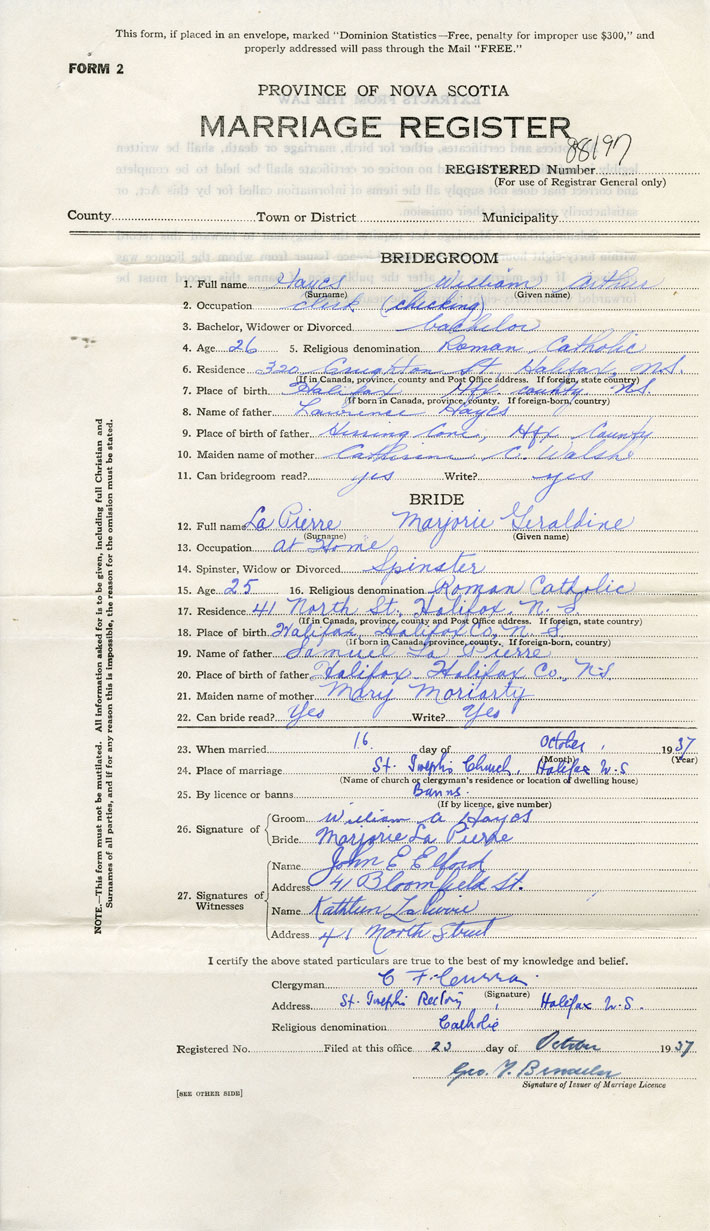 This form, if placed in an envelope, marked "Dominion Statistics—Free, penalty for improper use $300," and
properly addressed will pass through the Mail "FREE."
FORM 2
PROVINCE OF NOVA SCOTIA
MARRIAGE REGISTER
88197
REGISTERED Number
(For use of Registrar General only)
County Town or District Municipality
BRIDEGROOM
1. Full name Hayes William Arthur
(Surname) (Given name)
2. Occupation clerk (checking)
3. Bachelor, Widower or Divorced bachelor
4. Age 26 5. Religious denomination Roman Catholic
6. Residence 320 Creighton St. Halifax, N.S.
(If in Canada, province, county and Post Office address. If foreign, state country)
7. Place of birth Halifax Hfx County N.S.
(If born in Canada, province, county. If foreign-born, country)
8. Name of father Lawrence Hayes
9. Place of birth of father Herring Cove, Hfx County
10. Maiden name of mother Catherine C. Walshe
11. Can bridegroom read? yes Write? yes
BRIDE
12. Full name La Pierre Marjorie Geraldine
(Surname) (Given name)
13. Occupation at Home
14. Spinster, Widow or Divorced Spinster
15. Age 25 16. Religious denomination Roman Catholic
17. Residence 41 North St, Halifax, N. S
(If in Canada, province, county and Post Office address. If foreign, state country)
18. Place of birth Halifax, Halifax Co, N. S.
(If born in Canada, province, county. If foreign-born, country)
19. Name of father Samuel La Pierre
20. Place of birth of father Halifax Halifax Co., N.S
21. Maiden name of mother Mary Moriarty
22. Can bride read? Yes Write? Yes
23. When married 16 day of October, 1937
(Month) (Year)
24. Place of marriage St. Joseph's Church, Halifax N.S
(Name of church or clergyman's residence or location of dwelling house)
25. By licence or banns Banns
(If by licence, give number)
26. Signature of
Groom William A Hayes
Bride Marjorie La Pierre
27. Signatures of
Witnesses
Name John E Elford
Address 41 Bloomfield St.
Name Kathleen LaPierre
Address 41 North Street
I certify the above stated particulars are true to the best of my knowledge and belief.
Clergyman C F Curran
(Signature)
Address St. Joseph's Rectory, Halifax N.S.
Religious denomination Catholic
Registered No. Filed at this office 23 day of October 1937
Geo. T.
Signature of Issuer of Marriage Licence
[SEE OTHER SIDE]
NOTE.—This form must not be mutilated. All information asked for is to be given, including full Christian and
Surnames of all parties, and if for any reason this is impossible, the reason for the omission must be stated.